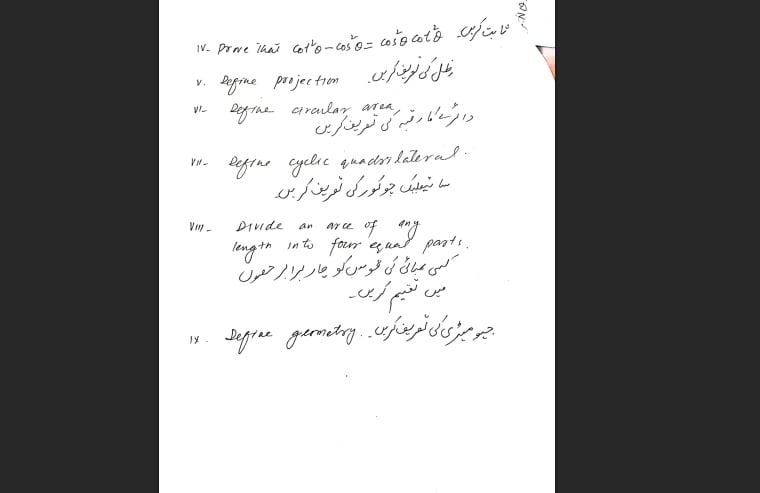 IV- Prove that cot²θ - cos²θ = cos²θ cot²θ ثابت کریں۔
V. Define projection ظل کی تعریف کریں۔
VI- Define circular area
دائرے کا رقبہ کی تعریف کریں
VII- Define cyclic quadrilateral.
سائیکلک چوکور کی تعریف کریں۔
VIII- Divide an arce of any
length into four equal parts.
کسی لمبائی کی قوس کو چار برابر حصوں
میں تقسیم کریں۔
IX. Define geometry. جیومیٹری کی تعریف کریں۔